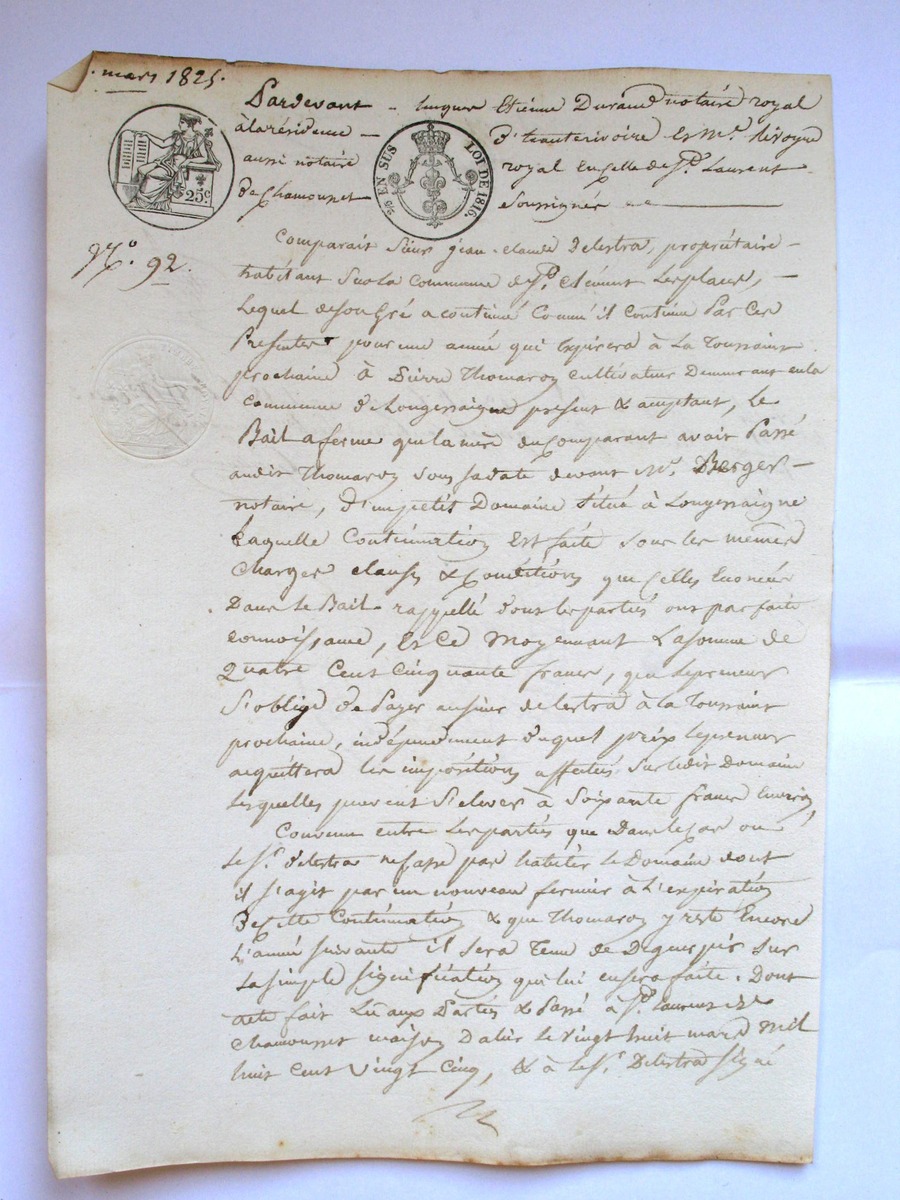 mars 1825.
Pardevant - Etienne Durand notaire royal
à la résidence - d'hauterivoire et Me.
aussi notaire royal en celle de St. Laurent
de Chamousset soussignés
25c
EN SUS LOI DE 1816.
No. 92.
Comparait Sieur jean-claude delestra, propriétaire -
habitant sur la commune de St. Clément lesplaces, -
Lequel de son gré a continué Comme il continue Par Ces
Presentes pour une année qui Expirera à La Toussaint
prochaine à Pierre Thomaron cultivateur Demeurant en la
commune de Longessaigne présent & acceptant, Le
Bail a ferme que la mère du Comparant avait Passé
audit Thomaron sous sa date devant Me. Berger -
notaire, d'un petit Domaine situé à Longessaigne
Laquelle Continuation Est faite sous les mêmes
Charges clauses & Conditions que Celles Enoncées
Dans le Bail rappellé dont les parties ont parfaite
connoissance, Et Ce Moyennant La somme de
Quatre Cent Cinquante francs, que le preneur
s'oblige de Payer au sieur delestra à la Toussaint
prochaine, indépendament duquel prix le preneur
acquittera les impositions affectées sur ledit Domaine
Lesquelles peuvent S'elever à Soixante francs Environ,
Convenu entre les parties que Dans le Cas ou
le Sr. delestra ne fasse pas habiter le Domaine dont
il s'agit par un nouveau fermier à L'expiration
De Cette Continuation & que Thomaron y reste Encore
L'année suivante il sera Tenu de Deguerpir sur
La simple signification qui lui en sera faite. Dont
acte fait Lu aux Parties & Passé à St. Laurent de
Chamousset maison D'albis le vingt huit mars Mil
huit Cent Vingt Cinq, & à le Sr. Delestra signé